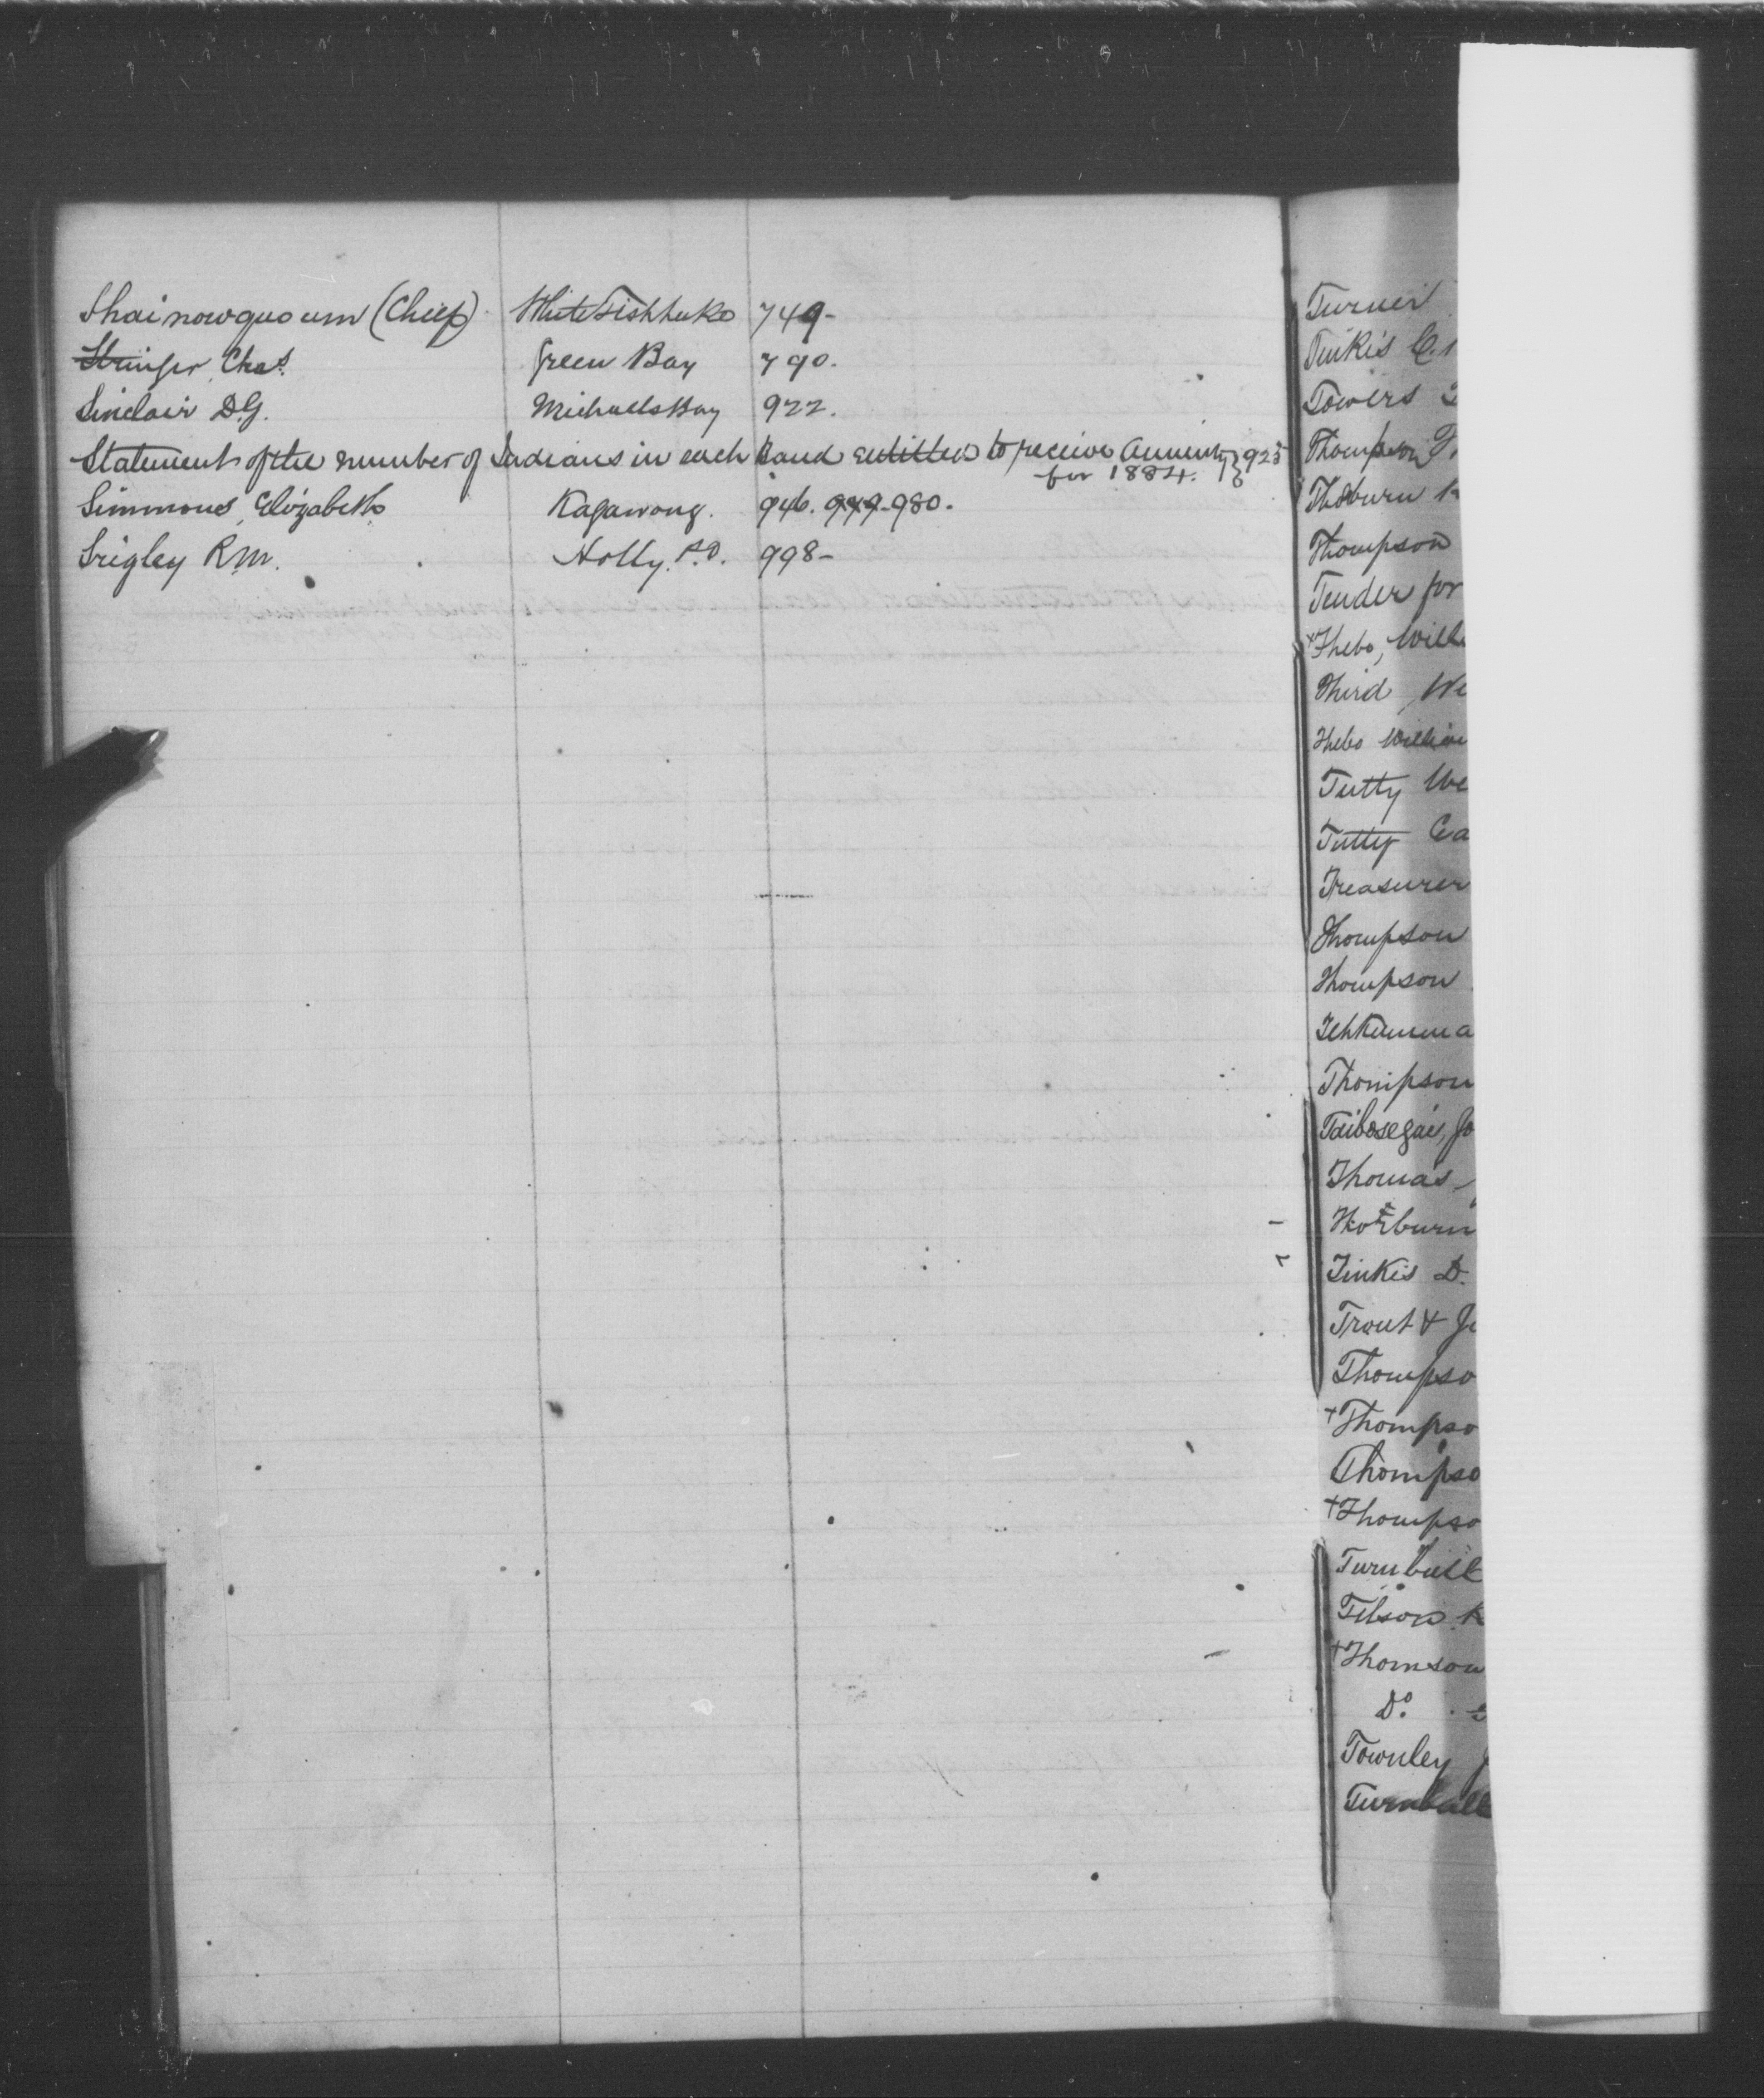 Shainowquoum (Chief) White Fish Lake 749-
Stringer Chas. Green Bay 790.
Sinclair D.G. Michaels Bay 922.
Statement of the number of Indians in each Band entitled to receive Annuity } 925
for 1884.
Simmons, Elizabeth Kagawong. 946. 949-980.
Srigley R.M. Holly. P.O. 998-
Turner
Tinkis C.
Towers
Thompson
Thorburn
Thompson
Tender for
Thebo, Will
Third, We
Thebo William
Tutty We
Tutty Ca
Treasurer
Thompson
Thompson
Tehkumma
Thompson
Taibosegai, Jo
Thomas
Thorburn
Tinkis D.
Trout & J
Thompso
+ Thompso
Thompso
+ Thompso
Turnbull
Tilson R
+ Thomson
Do.
Townley J
Turnbull